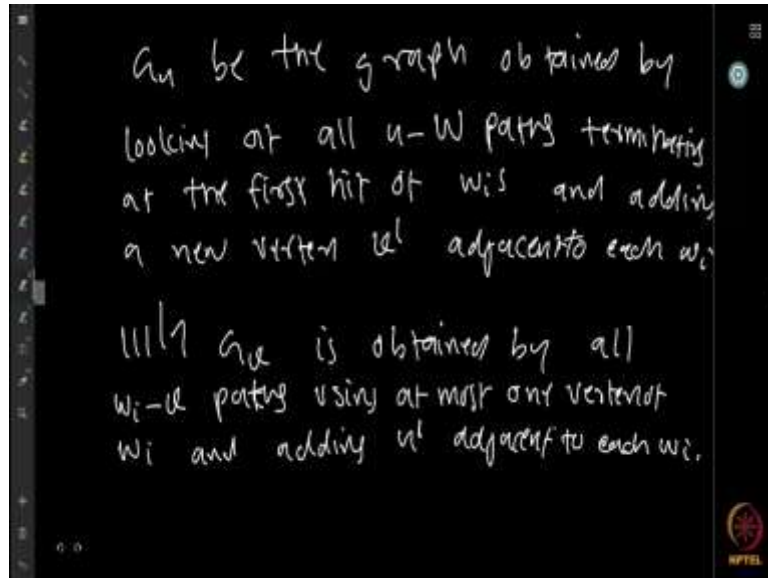 Gu be the graph obtained by
looking at all u-W paths terminating
at the first hit of wis and adding
a new vertex v' adjacent to each wi
lllly Gv is obtained by all
wi-v paths using at most one vertex of
wi and adding u' adjacent to each wi.
NPTEL